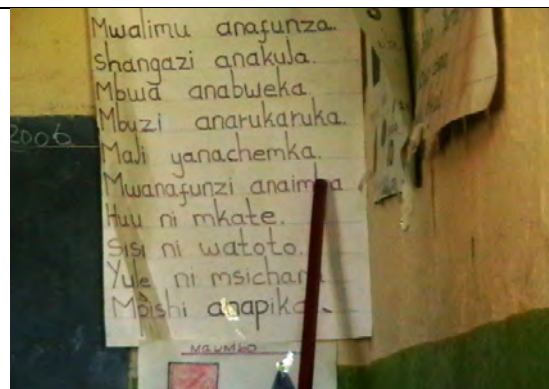 Mwalimu anafunza.
Shangazi anakula.
Mbwa anabweka.
Mbuzi anarukaruka.
2006
Maji yanachemka.
Mwanafunzi anaimba
Huu ni mkate.
Sisi ni watoto.
Yule ni msichana
Mpishi anapika.
MAUMBO